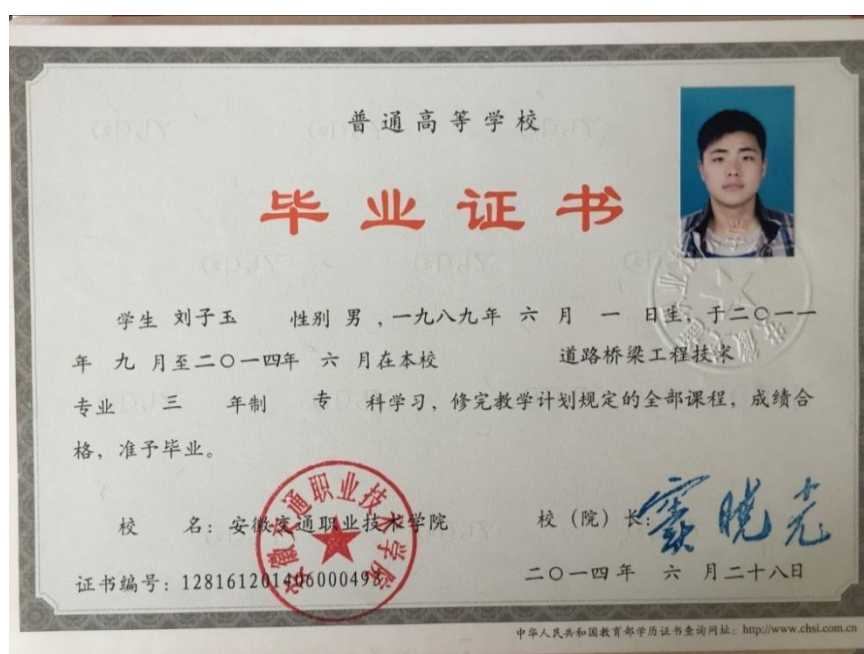 普通高等学校
毕业证书
学生 刘子玉 性别 男 ,一九八九年 六 月 一 日生,于二〇一一
年 九 月至二〇一四年 六 月在本校 道路桥梁工程技术
专业 三 年制 专 科学习,修完教学计划规定的全部课程,成绩合
格,准予毕业。
校 名:安徽交通职业技术学院 校(院)长:
安徽交通职业技术学院
证书编号:128161201406000498 二〇一四年 六 月二十八日
中华人民共和国教育部学历证书查询网址:http://www.chsi.com.cn